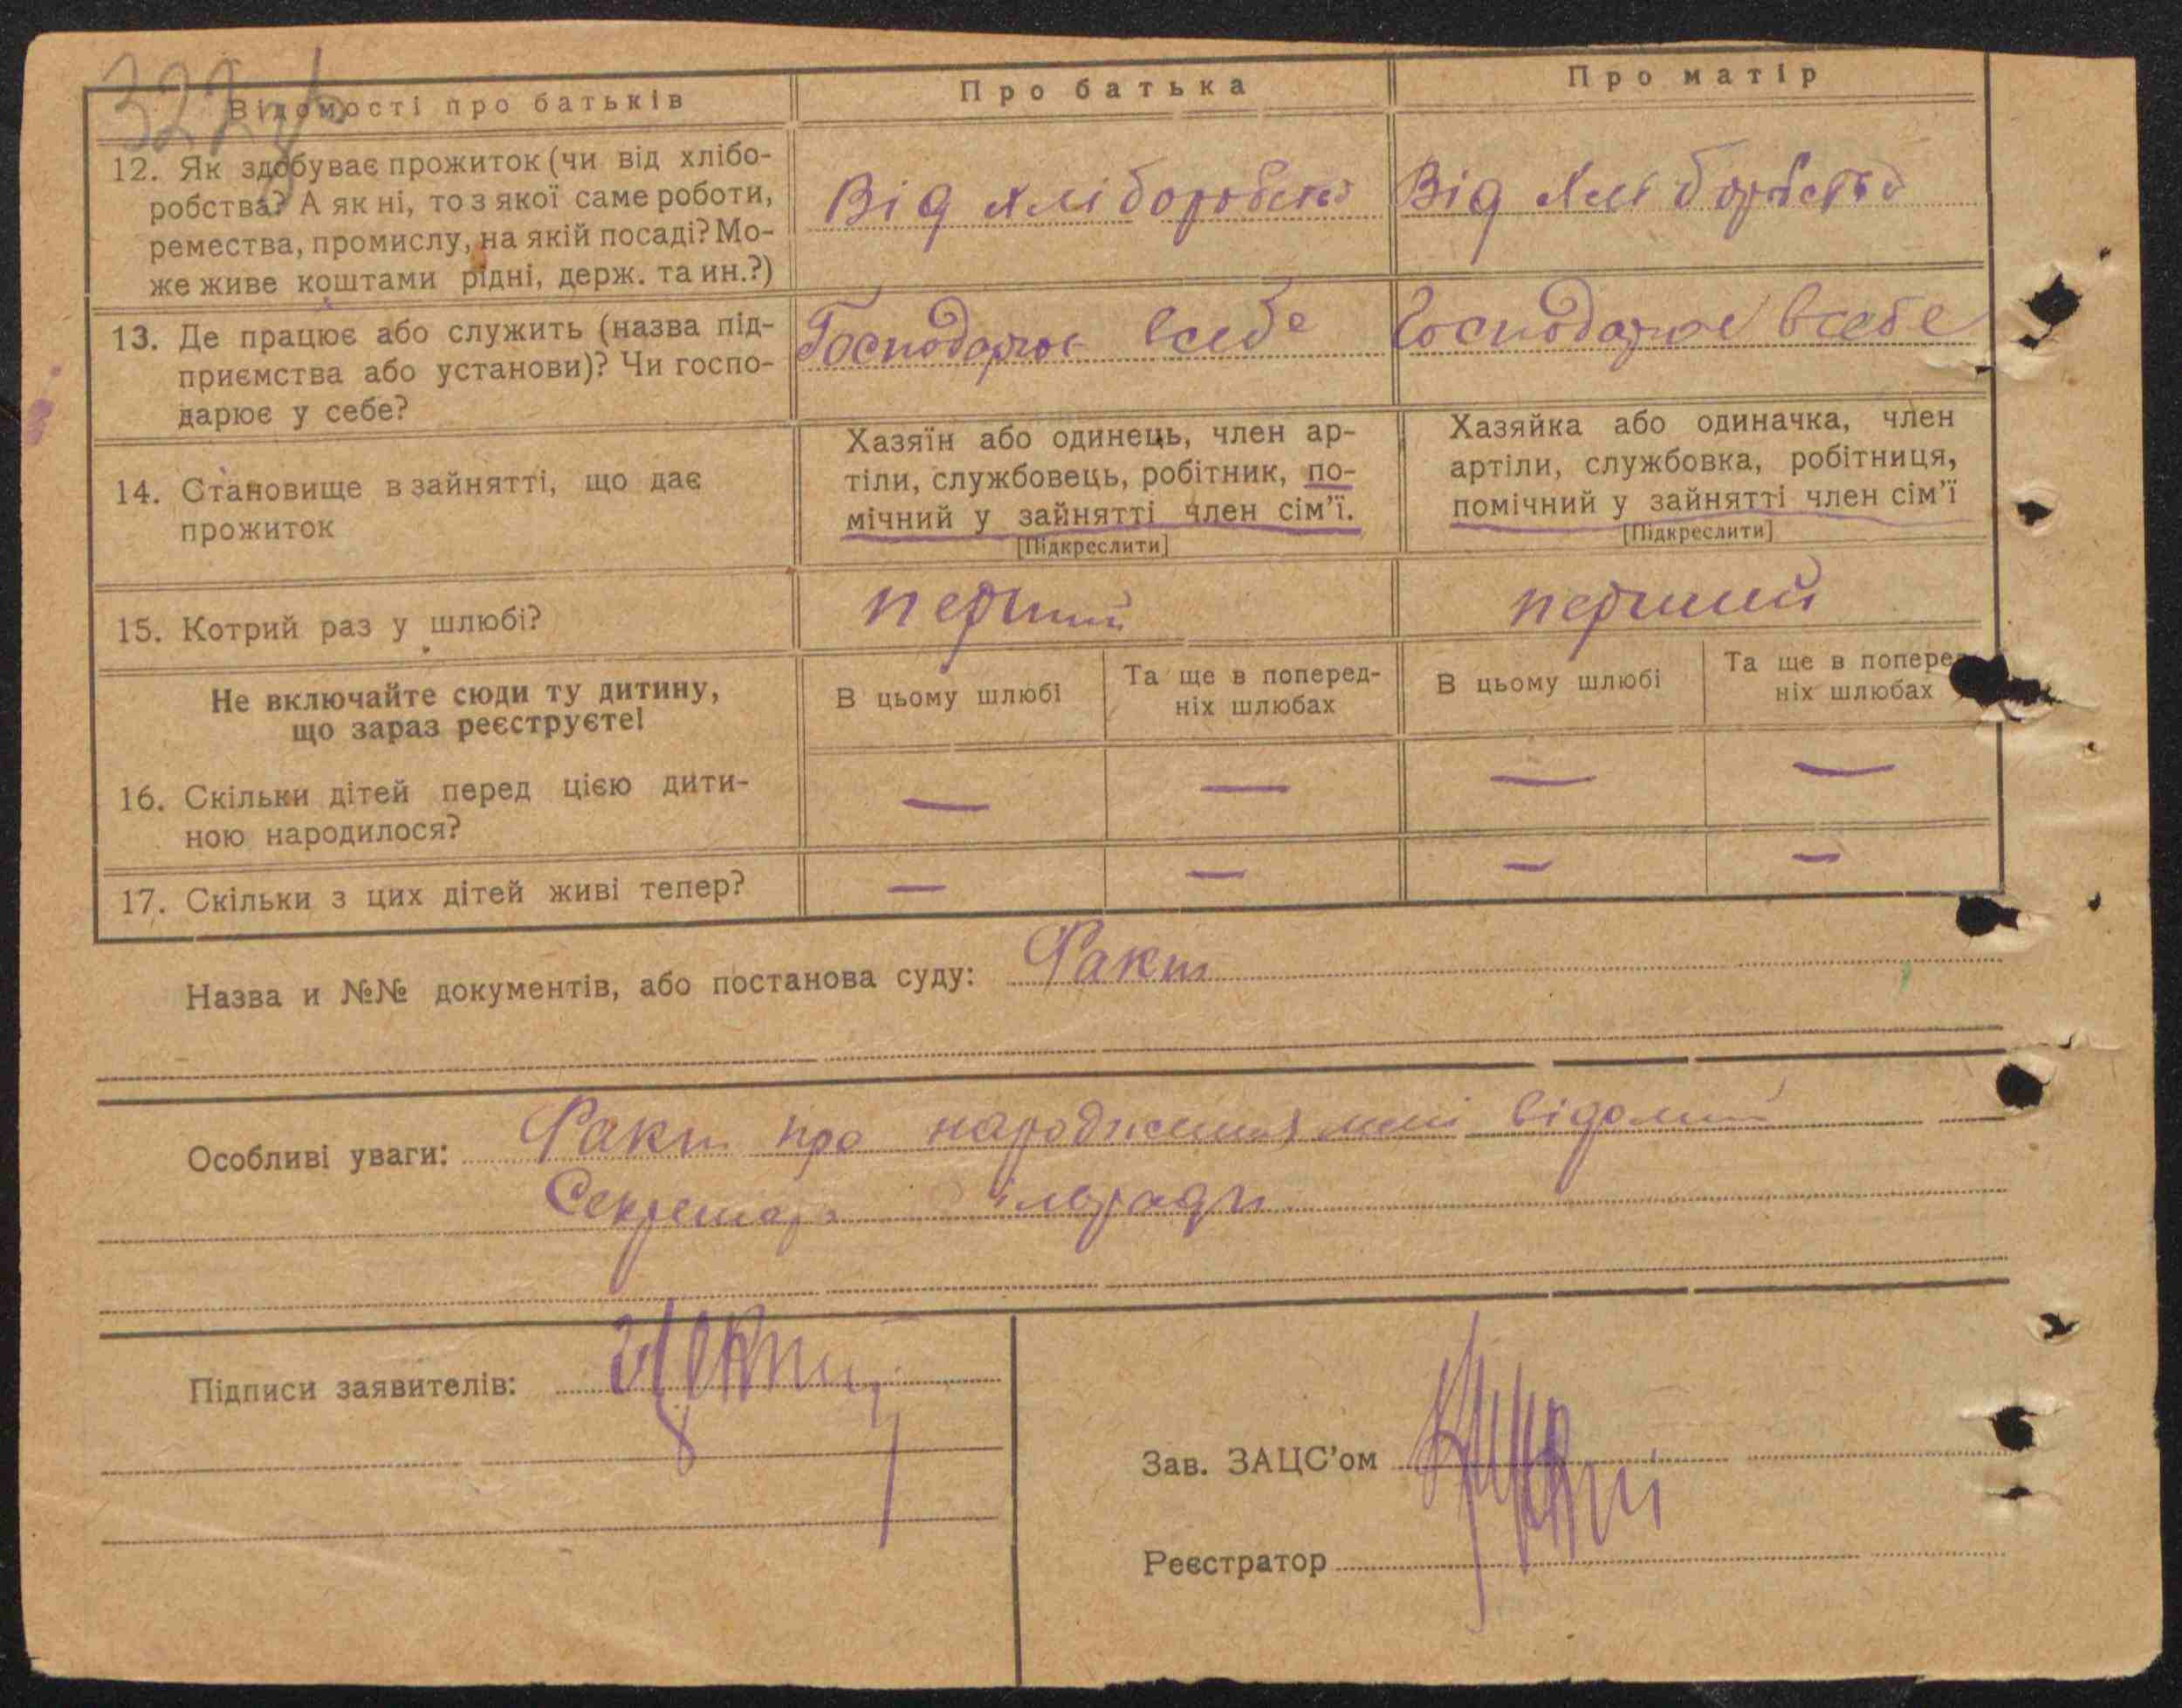 322
Відомості про батьків
Про батька
Про матір
12. Як здобуває прожиток (чи від хлібо-
робства? А як ні, то з якої саме роботи,
ремества, промислу, на якій посаді? Мо-
же живе коштами рідні, держ. та ин.?)
Від хліборобства
Від хліборобства
13. Де працює або служить (назва під-
приємства або установи)? Чи госпо-
дарює у себе?
Господарює всебе
Господарює всебе
14. Становище в зайнятті, що дає
прожиток
Хазяїн або одинець, член ар-
тіли, службовець, робітник, по-
мічний у зайнятті член сім'ї.
[Підкреслити]
Хазяйка або одиначка, член
артіли, службовка, робітниця,
помічний у зайнятті член сім'ї
[Підкреслити]
15. Котрий раз у шлюбі?
перший
перший
Не включайте сюди ту дитину,
що зараз реєструєте!
В цьому шлюбі
Та ще в поперед-
ніх шлюбах
В цьому шлюбі
Та ще в поперед-
ніх шлюбах
16. Скільки дітей перед цією дити-
ною народилося?
— — — —
17. Скільки з цих дітей живі тепер?
— — — —
Назва и №№ документів, або постанова суду: Факт
Особливі уваги: Факт про народження мені відомий
Секретарь сільради
Підписи заявителів:
Зав. ЗАЦС'ом
Реєстратор